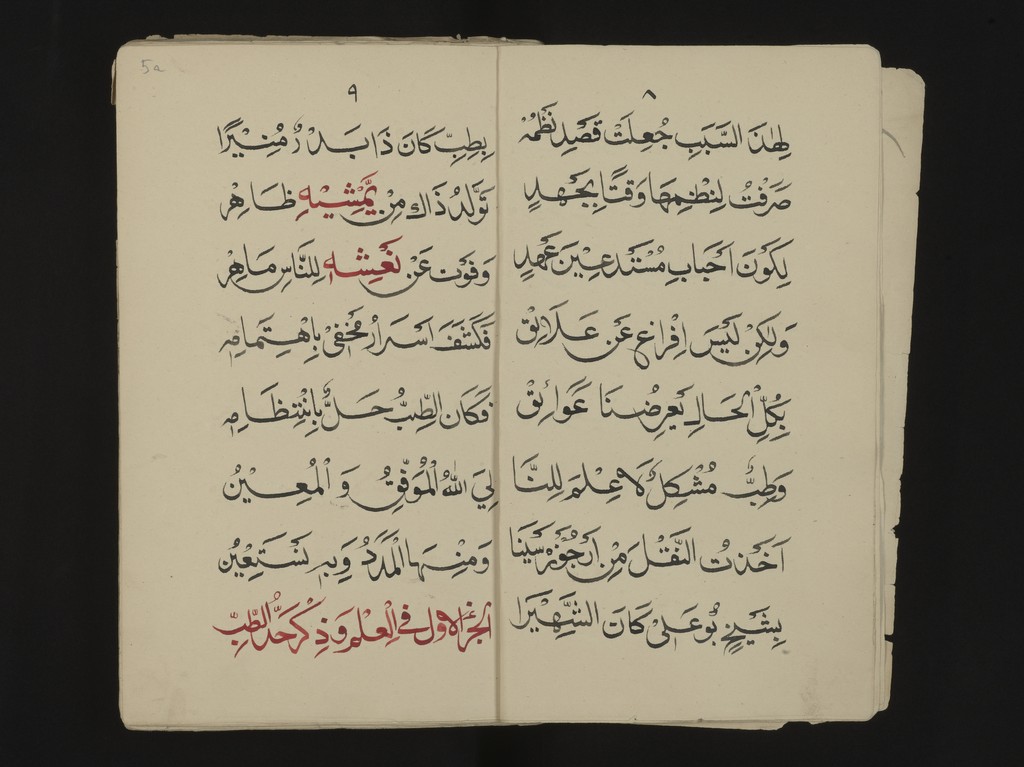 ٨
لِهٰذَ السَّبَبِ جُعِلَتْ قَصْدِ نَظْمُهْ
صَرَفْتُ لِنَظْمِهَا وَقْتًا بِجَهْدٍ
لِكَوْنَ اَحْبَابِ مُسْتَدْعِيْنَ عَهْدٍ
وَلٰكِنْ لَيْسَ اِفْرَاغٍ عَنْ عَلَايِقْ
بِكُلِّ الْحَالِ يَعْرِضُنَا عَوَائِقْ
وَطِبُّ مُشْكِلٌ لَاعِلْمَ لِلنَّا
اَخَذْتُ النَّقْلَ مِنْ اُرْجُوْزَه سِيْنَا
بِشَيْخٍ بُوعَلى كَانَ الشَّهِيْرَا
٩
بِطِبِّ كَانَ ذَا بَدْرٌ مُنِيْرًا
تَوَلَّدُ ذَاكَ مِنْ يَّمْشِيْهِ ظَاهِرْ
وَفَوْت عَنْ نَعْشِهِ لِلنَّاسِ مَاهِرْ
فَكَشْفَ اَسْرَارُ مَخْفِىْ بِاهْتِمَامِهِ
فَكَانَ الطِّبُّ حَلٌّ بِانْتِظَامِهِ
لِيَ اللهُ الْمُوَفِّقُ وَالْمُعِيْنُ
وَمِنْهَا الْمَدَدُ وَبِهِ نَسْتَعِيْنُ
الجزءُ الاول في العِلْمِ وَذِكْرَحَدُّ الطِّبِّ
5a